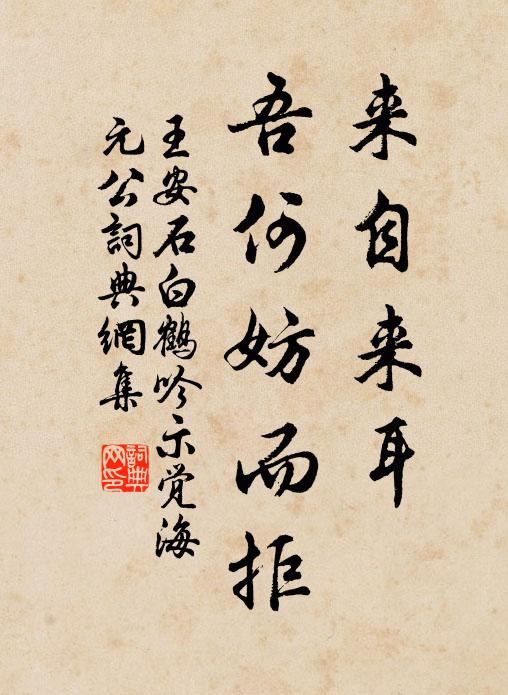 来自来耳
吾何妨而拒
王安石白鶴吟示覚海
元公詞典網集
詞典网印